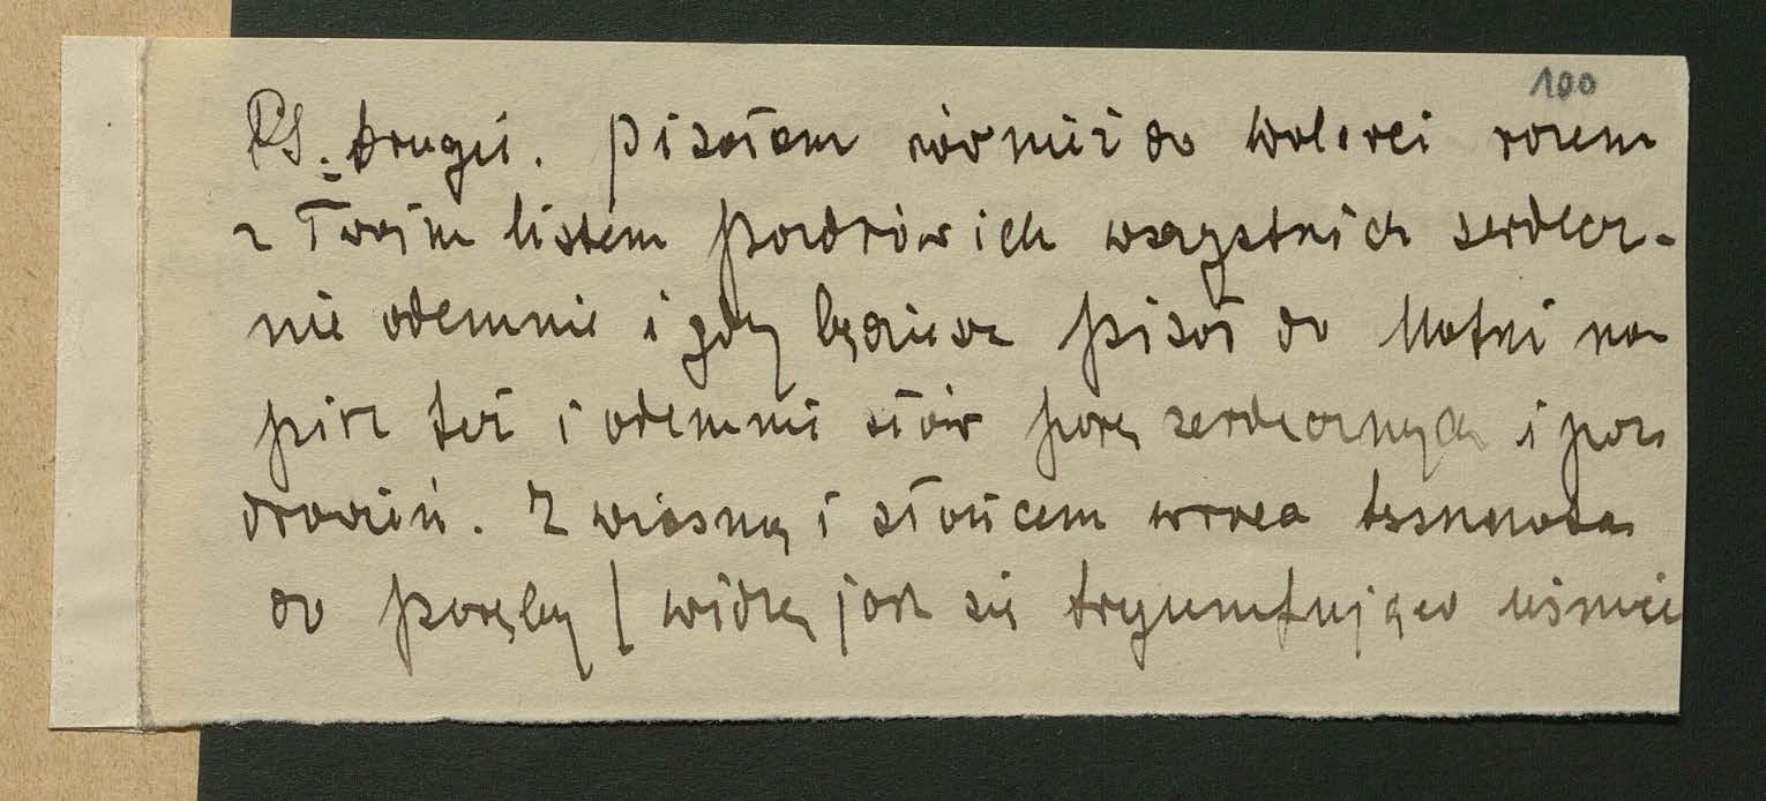 100
PS. drugie. Pisałam również do Walerci razem
z Twoim listem pozdrów ich wszystkich serdecz-
nie odemnie i gdy będziesz pisał do Matki na
pisz też i odemnie słów parę serdecznych i poz
drowień. Z wiosną i słońcem wraca tęsknota
do Poręby / widzę jak się tryumfująco uśmie